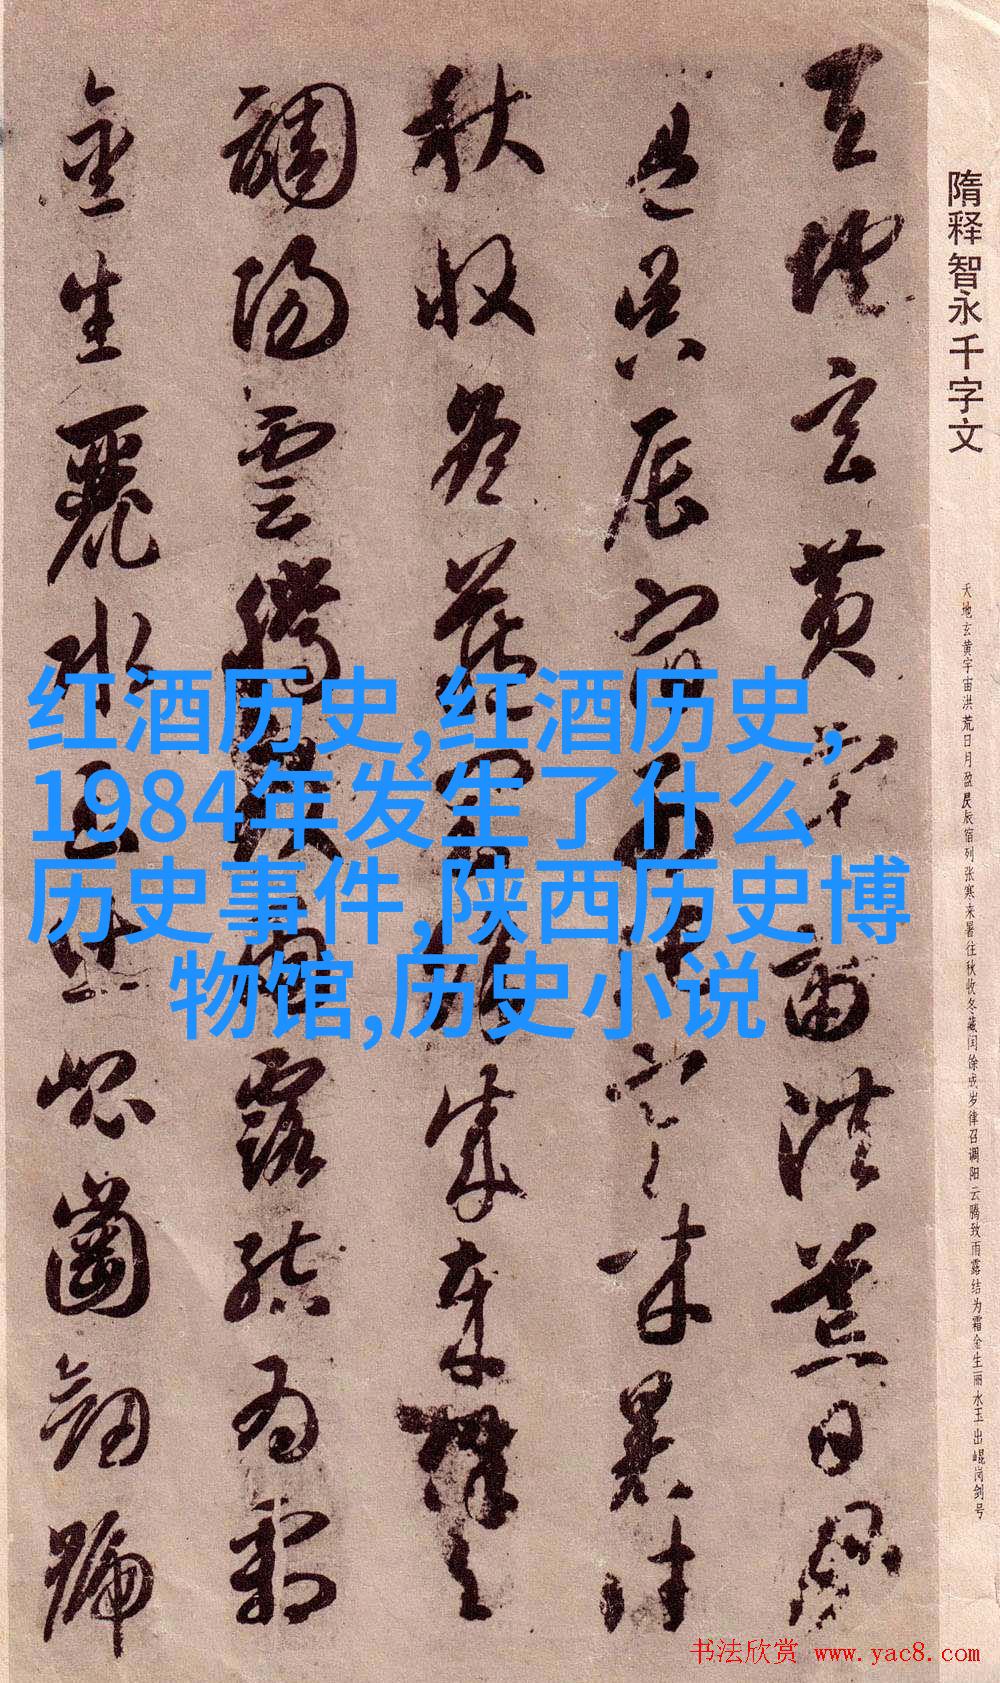 隋释智永千字文
天地玄黄宇宙洪荒日月盈昃辰宿列张寒来暑往秋收冬藏闰馀成岁律召调阳云腾致雨露结为霜金生丽水玉出崐岗剑号
天地玄黄宇宙洪荒日月
盈昃辰宿列張寒来暑往
秋收冬藏閏餘成歲律召
調陽雲騰致雨露結為霜
金生麗水玉出崐崗劍號
红酒历史,红酒历史,
1984年发生了什么
历史事件,陕西历史博
物馆,历史小说
书法欣赏 www.yac8.com